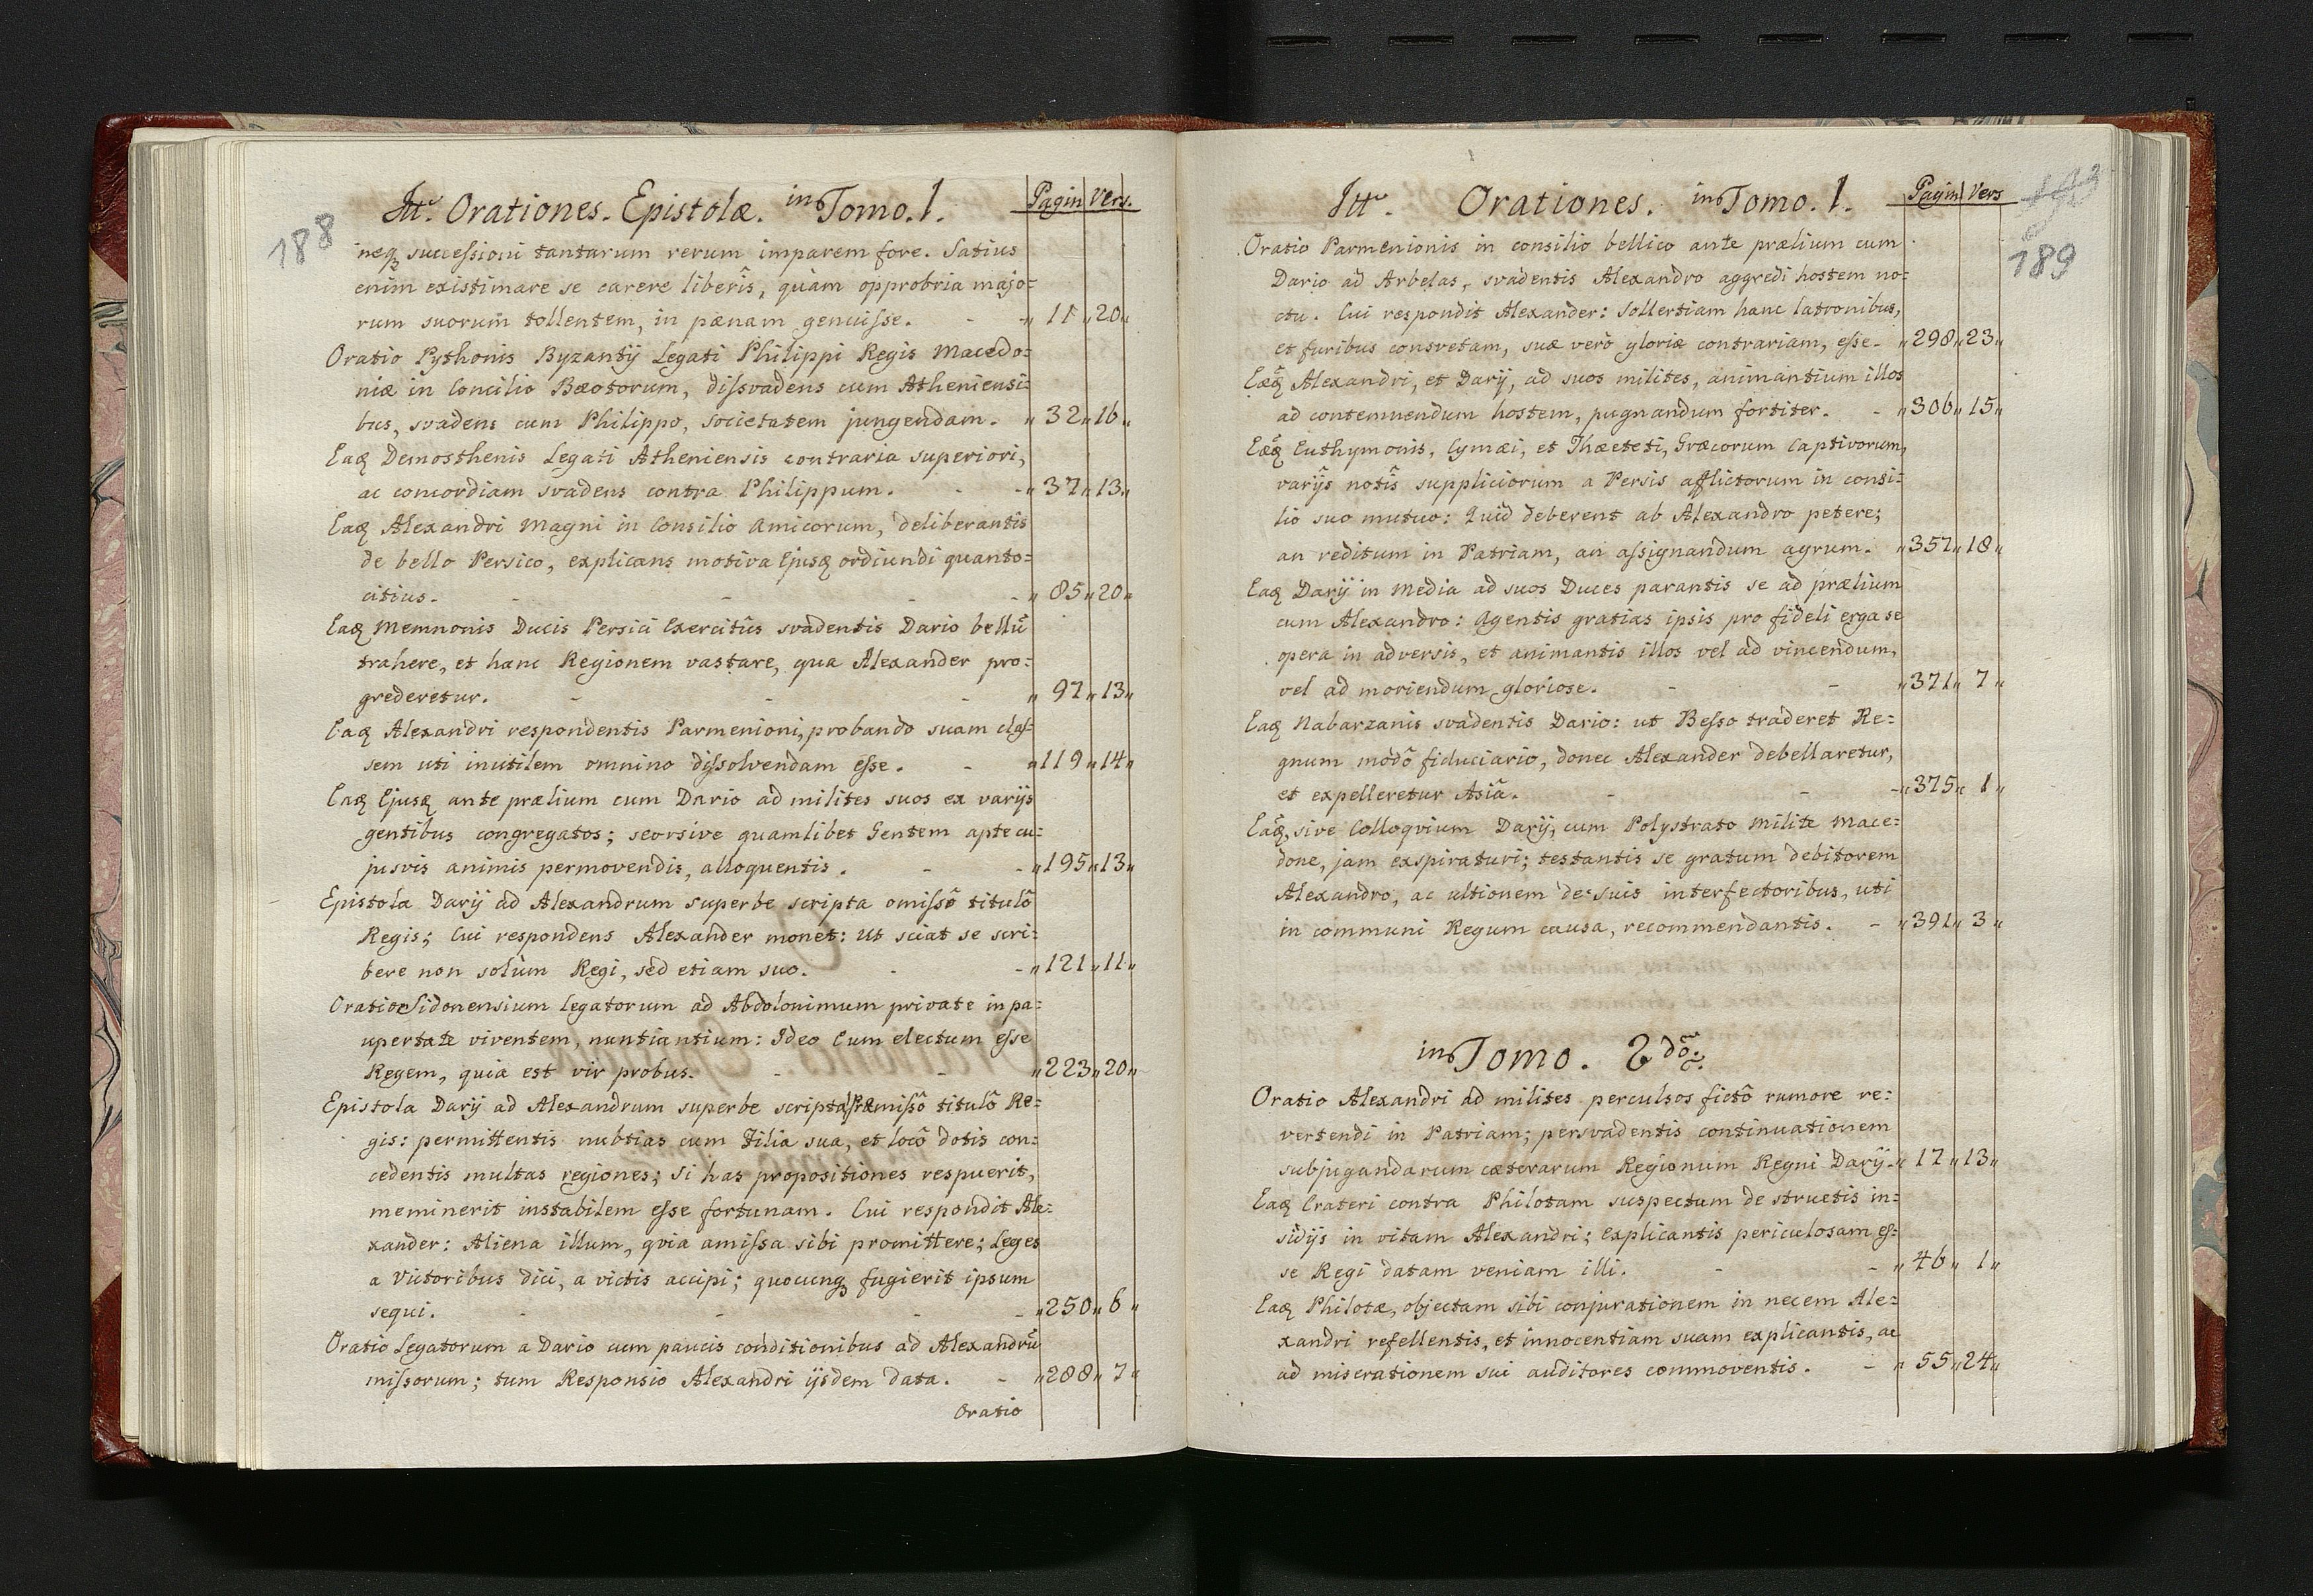 188
Itt. Orationes. Epistolæ. in Tomo. 1. Pagin Vers.
neqꝫ successioni tantarum rerum imparem fore. Satius
enim existimare se carere liberîs, quàm opprobria majo=
rum suorum tollentem, in pænam genuisse. - - „ 11 „ 20 „
Oratio Pythonis Byzantij Legati Philippi Regis Macedo=
niæ in Concilio Bæotorum, dissvadens cum Atheniensi=
bus, svadens cum Philippo, societatem jungendam. „ 32 „ 16 „
Eaꝗ Demosthenis Legati Atheniensis contraria superiori,
ac concordiam svadens contra Philippum. - - „ 37 „ 13 „
Eaꝗ Alexandri Magni in Consilio Amicorum, deliberantis
de bello Persico, explicans motiva Ejusꝗ ordiundi quanto=
citius. - - - - „ 85 „ 20 „
Eaꝗ Memnonis Ducis Persici Exercitûs svadentis Dario bellū
trahere, et hanc Regionem vastare, qua Alexander pro=
grederetur. - - - „ 97 „ 13 „
Eaꝗ Alexandri respondentis Parmenioni, probando suam clas=
sem uti inutilem omnino dissolvendam esse. - „ 119 „ 14 „
Eaꝗ Ejusꝗ ante prælium cum Dario ad milites suos ex varijs
gentibus congregatos; seorsive quamlibet Gentem apte cu=
jusvis animis permovendis, alloquentis. - - „ 195 „ 13 „
Epistola Darij ad Alexandrum superbe scripta omissô titulô
Regis; Cui respondens Alexander monet: Ut sciat se scri=
bere non solùm Regi, sed etiam suo. - - „ 121 „ 11 „
Oratio Sidonensium Legatorum ad Abdolonimum private in pa=
upertate viventem, nuntiantium: Ideo Eum electum esse
Regem, quia est vir probus. - - „ 223 „ 20 „
Epistola Darij ad Alexandrum superbe scripta, præmissô titulô Re=
gis: permittentis nubtias cum Filia sua, et locô dotis con=
cedentis multas regiones; Si has propositiones respuerit,
meminerit instabilem esse fortunam. Cui respondit Ale=
xander: Aliena illum, qvia amissa sibi promittere; Leges
a Victoribus dici, a victis accipi; quocunqꝫ fugierit ipsum
sequi. - - - - „ 250 „ 6 „
Oratio Legatorum a Dario cum paucis conditionibus ad Alexandrū
missorum; tum Responsio Alexandri ijsdem data. - „ 288 „ 7 „
Oratio
189
Itt. Orationes. in Tomo. 1. Pagin Vers
Oratio Parmenionis in consilio bellico ante prælium cum
Dario ad Arbelas, svadentis Alexandro aggredi hostem no=
ctu. Cui respondit Alexander: Sollertiam hanc latronibus,
et furibus consvetam, suæ verò gloriæ contrariam, esse. „ 298 „ 23 „
Eæꝗ Alexandri, et Darij, ad suos milites, animantium illos
ad contemnendum hostem, pugnandum fortiter. - „ 306 „ 15 „
Eæꝗ Euthymonis, Cymæi, et Thæeteti, Græcorum Captivorum,
varijs notîs suppliciorum a Persis afflictorum in consi=
lio suo mutuo: Quid deberent ab Alexandro petere;
an reditum in Patriam, an assignandum agrum. „ 357 „ 18 „
Eaꝗ Darij in Media ad suos Duces parantis se ad prælium
cum Alexandro: Agentis gratias ipsis pro fideli erga se
opera in adversis, et animantis illos vel ad vincendum,
vel ad moriendum gloriose. - - „ 371 „ 7 „
Eaꝗ Nabarzanis svadentis Dario: ut Besso traderet Re=
gnum modô fiduciario, donec Alexander debellaretur,
et expelleretur Asiâ. - - - „ 375 „ 1 „
Eaꝗ, sive Colloqvium Darij, cum Polystrato Milite Mace=
done, jam exspiraturi; testantis se gratum debitorem
Alexandro, ac ultionem de suis interfectoribus, uti
in communi Regum causa, recommendantis. - „ 391 „ 3 „
in Tomo. 2dô.
Oratio Alexandri ad milites perculsos fictô rumore re=
vertendi in Patriam; persvadentis continuationem
subjugandarum cæterarum Regionum Regni Darij. „ 17 „ 13 „
Eaꝗ Crateri contra Philotam suspectum de structis in=
sidijs in vitam Alexandri; explicantis periculosam es=
se Regi datam veniam illi. - - „ 46 „ 1 „
Eaꝗ Philotæ, objectam sibi conjurationem in necem Ale=
xandri refellentis, et innocentiam suam explicantis, ac
ad miserationem sui auditores commoventis. - „ 55 „ 24 „